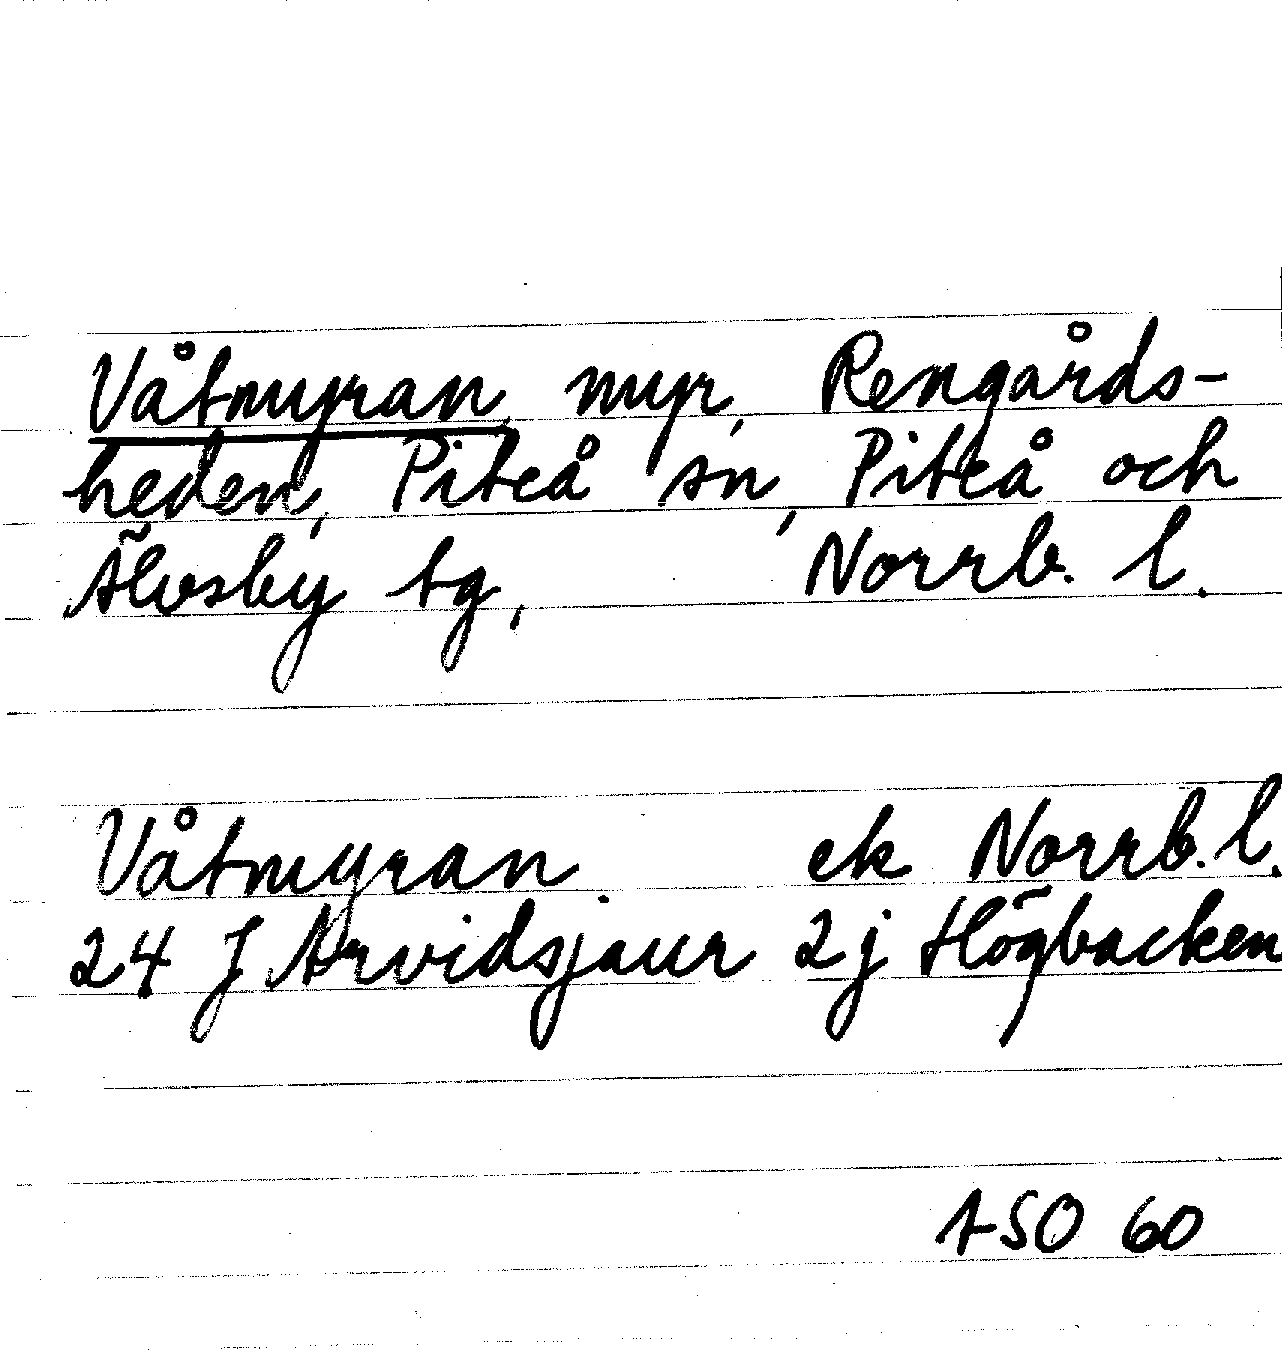 Våtmyran, myr, Rengårds-
heden, Piteå sn, Piteå och
Älvsby tg, Norrb. l.
Våtmyran. ek Norrb. l.
24 J Arvidsjaur 2j Högbacken
ASO 60